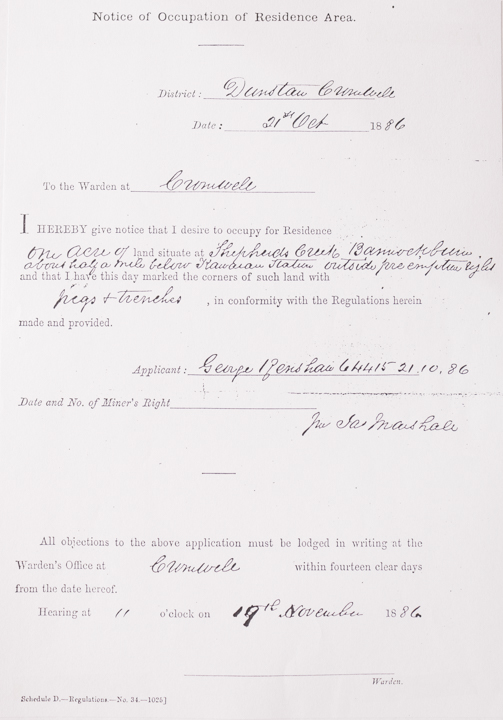 Notice of Occupation of Residence Area.
District: Dunstan Cromwell
Date: 21st Oct 1886
To the Warden at Cromwell
I HEREBY give notice that I desire to occupy for Residence
One Acre of land situate at Shepherds Creek Bannockburn
about half a mile below Kawarau Station outside pre emptive right
and that I have this day marked the corners of such land with
pegs & trenches, in conformity with the Regulations herein
made and provided.
Applicant: George 64415 21.10.86
Date and No. of Miner's Right
Jas Marshall
All objections to the above application must be lodged in writing at the
Warden's Office at Cromwell within fourteen clear days
from the date hereof.
Hearing at 11 o'clock on 19th November 1886
Warden.
Schedule D.—Regulations—No. 34.—1025]